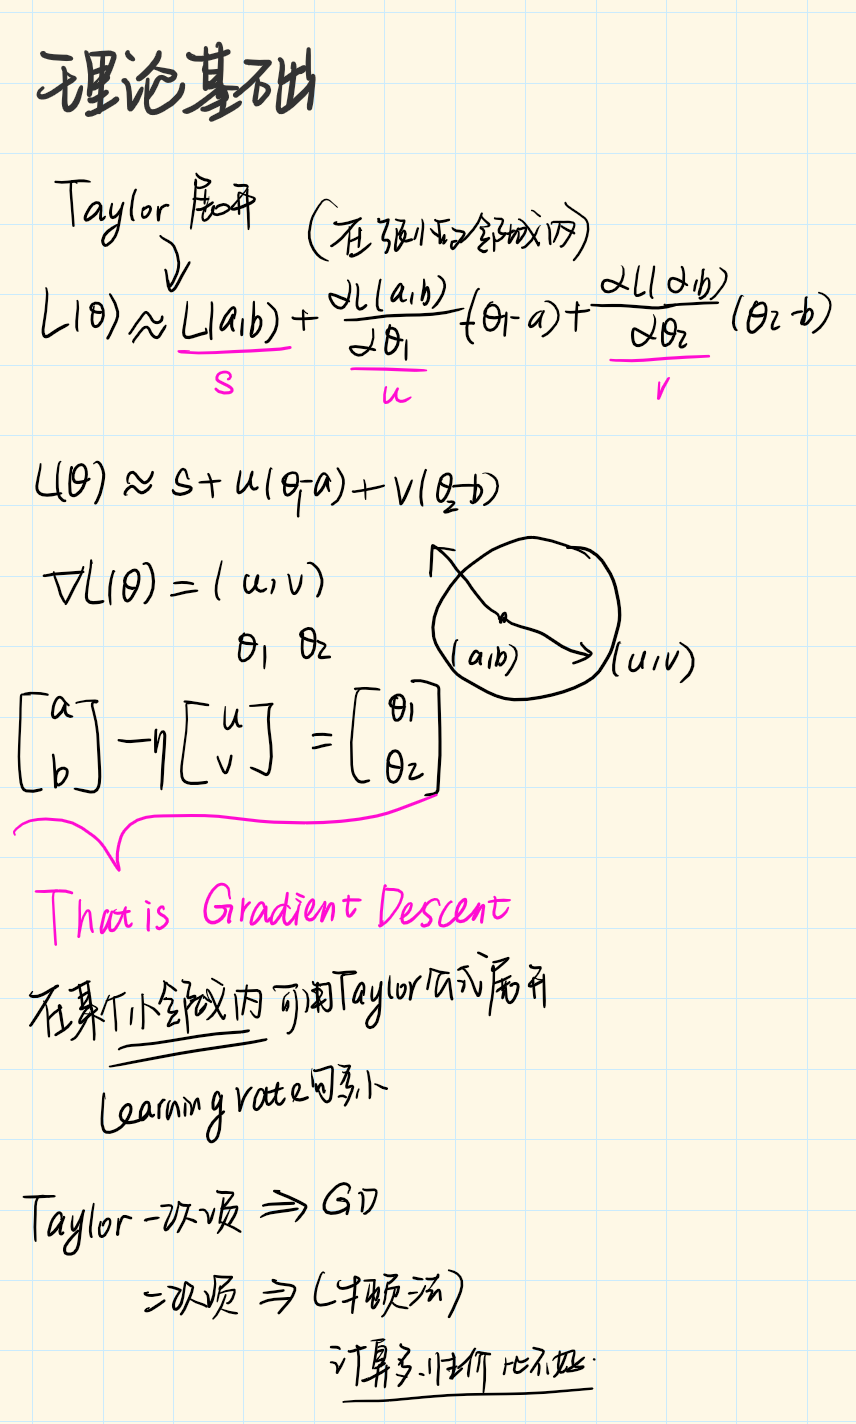 理论基础
Taylor 展开
(在很小的邻域内)
L(θ) ≈ L(a,b) + ∂L(a,b)/∂θ₁ (θ₁-a) + ∂L(a,b)/∂θ₂ (θ₂-b)
s u v
L(θ) ≈ s + u(θ₁-a) + v(θ₂-b)
∇L(θ) = (u,v)
θ₁ θ₂
(a,b) (u,v)
[a b] - η [u v] = [θ₁ θ₂]
That is Gradient Descent
在某个小邻域内可用Taylor公式展开
Learning rate 够小
Taylor 一次项 ⇒ GD
二次项 ⇒ (牛顿法)
计算多.性价比不好.